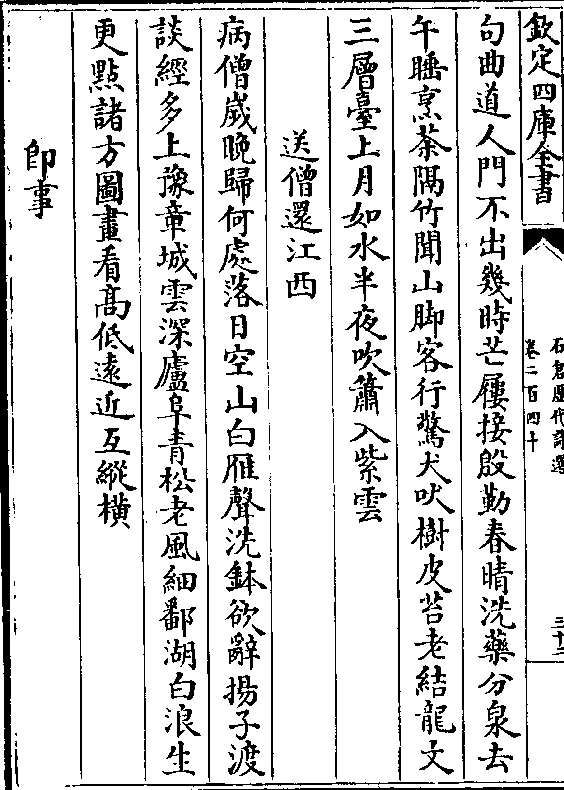 欽定四庫全書
石倉歷代詩選
卷二百四十
句曲道人門不出幾時芒屨接殷勤春晴洗藥分泉去
午睡烹茶隔竹聞山脚客行驚犬吠樹皮苔老結龍文
三層臺上月如水半夜吹簫入紫雲
送僧還江西
病僧嵗晩歸何處落日空山白雁聲洗鉢欲辭揚子渡
談經多上豫章城雲深廬阜青松老風細鄱湖白浪生
更㸃諸方圖畫看髙低逺近互縱横
即事